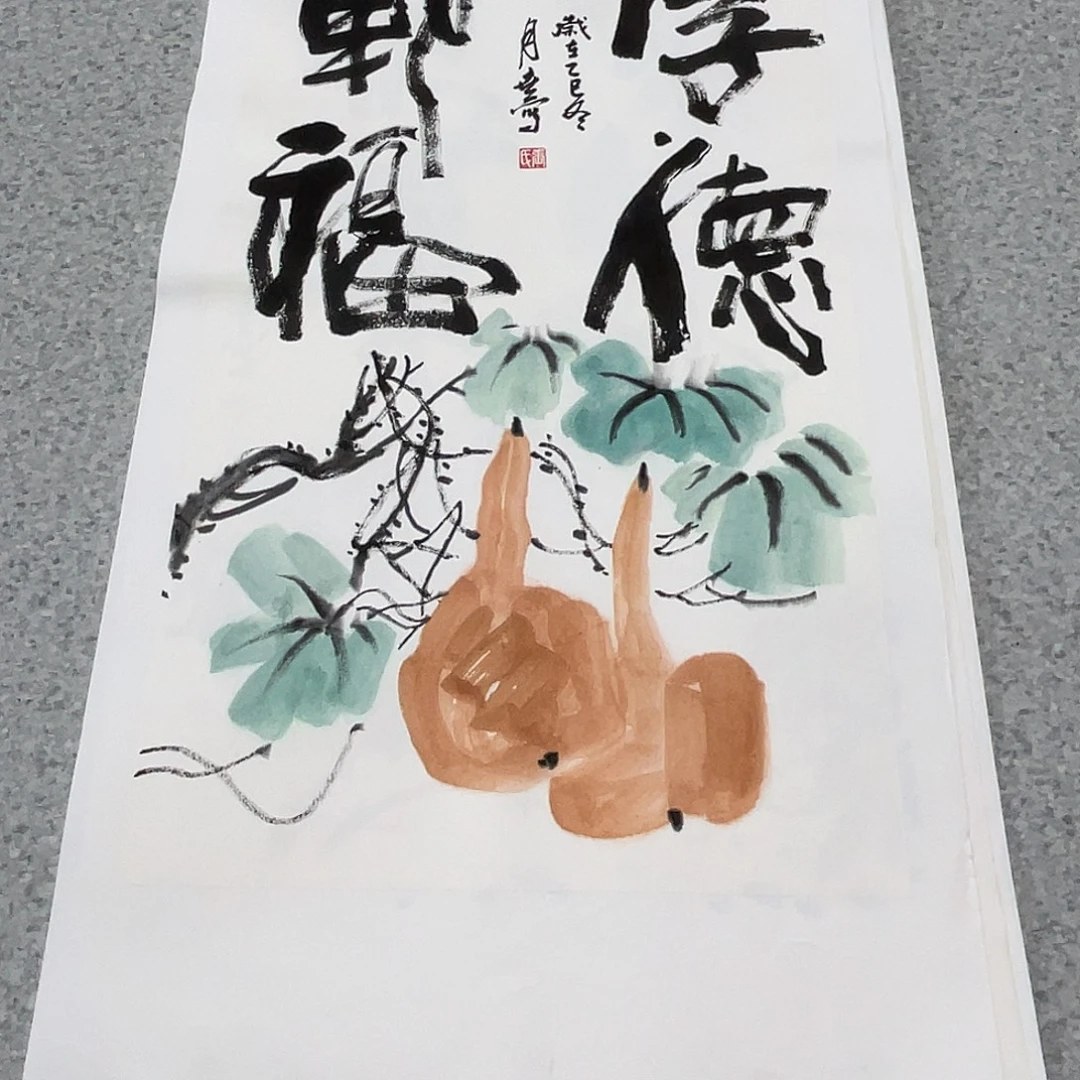 厚德
歲在乙巳冬
月
載福